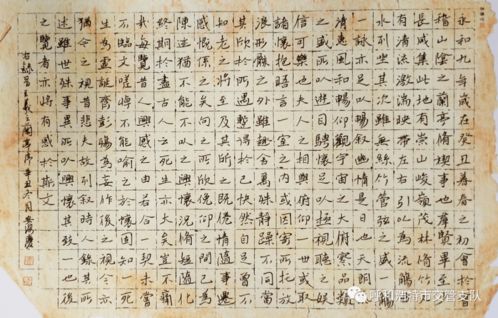 永和九年歲在癸丑暮春之初會於會
稽山陰之蘭亭脩稧事也群賢畢至少
長咸集此地有崇山峻領茂林脩竹又
有清流激湍映帶左右引以為流觴曲
水列坐其次雖無絲竹管弦之盛一觴
一詠亦足以暢叙幽情是日也天朗氣
清惠風和暢仰觀宇宙之大俯察品類
之盛所以遊目騁懷足以極視聽之娛
信可樂也夫人之相與俯仰一世或取
諸懷抱悟言一室之內或因寄所託放
浪形骸之外雖趣舍萬殊靜躁不同當
其欣於所遇暫得於己快然自足曾不
知老之將至及其所之既倦情隨事遷
感慨係之矣向之所欣俛仰之間已為
陳迹猶不能不以之興懷況脩短隨化
終期於盡古人云死生亦大矣豈不痛
哉每覽昔人興感之由若合一契未嘗
不臨文嗟悼不能喻之於懷固知一死
生為虛誕齊彭殤為妄作後之視今亦
猶今之視昔悲夫故列叙時人錄其所
述雖世殊事異所以興懷其致一也後
之覽者亦將有感於斯文
右錄晉王羲之蘭亭序 辛丑六月 安海慶
呼和浩特市交管支队